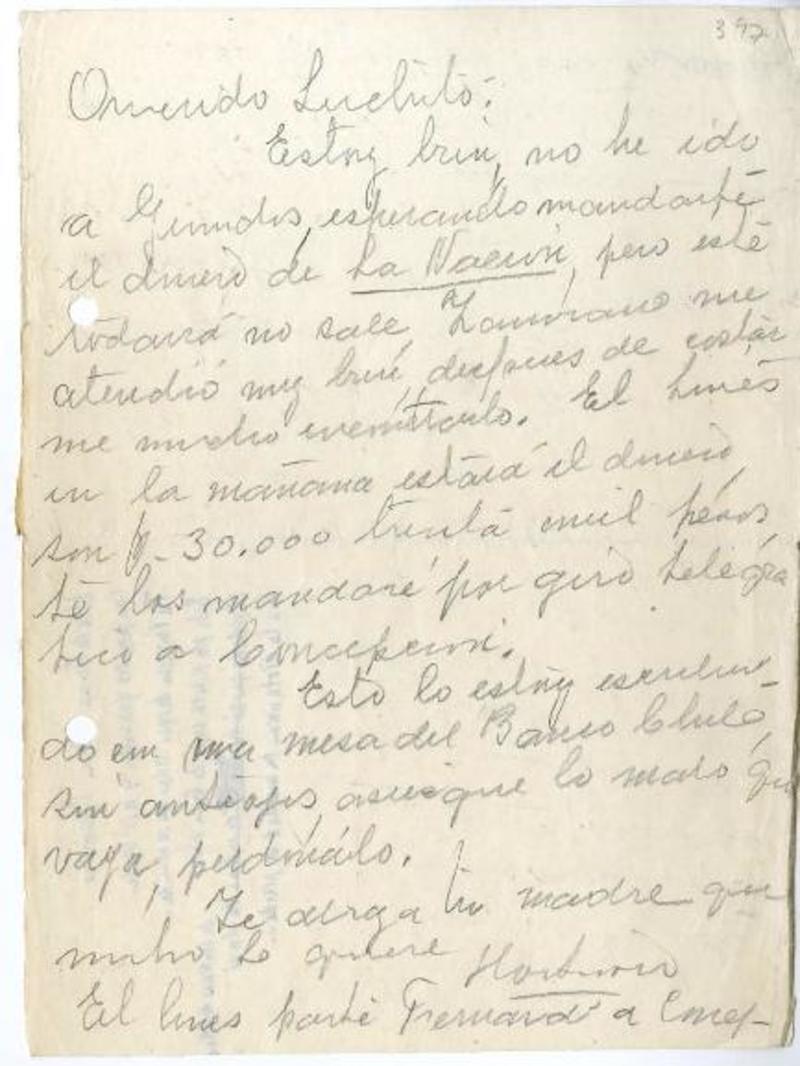 397
Querido Luchito:
Estoy bien, no he ido
a esperando mandarte
el dinero de La Nación, pero este
todavía no sale, Zamorano me
atendió muy bien, despues de costar
me mucho encontrarlo. El Lunes
en la mañana estará el dinero,
son $ - 30.000 treinta mil pesos,
te los mandaré por giro telegra
fico a Concepcion.
Esto lo estoy escribien-
do en una mesa del Banco Chile,
sin anteojos, asi que lo malo que
vaya, perdónalo.
Te abraza tu madre que
mucho te quiere
El lunes parte Fernando a Concep-